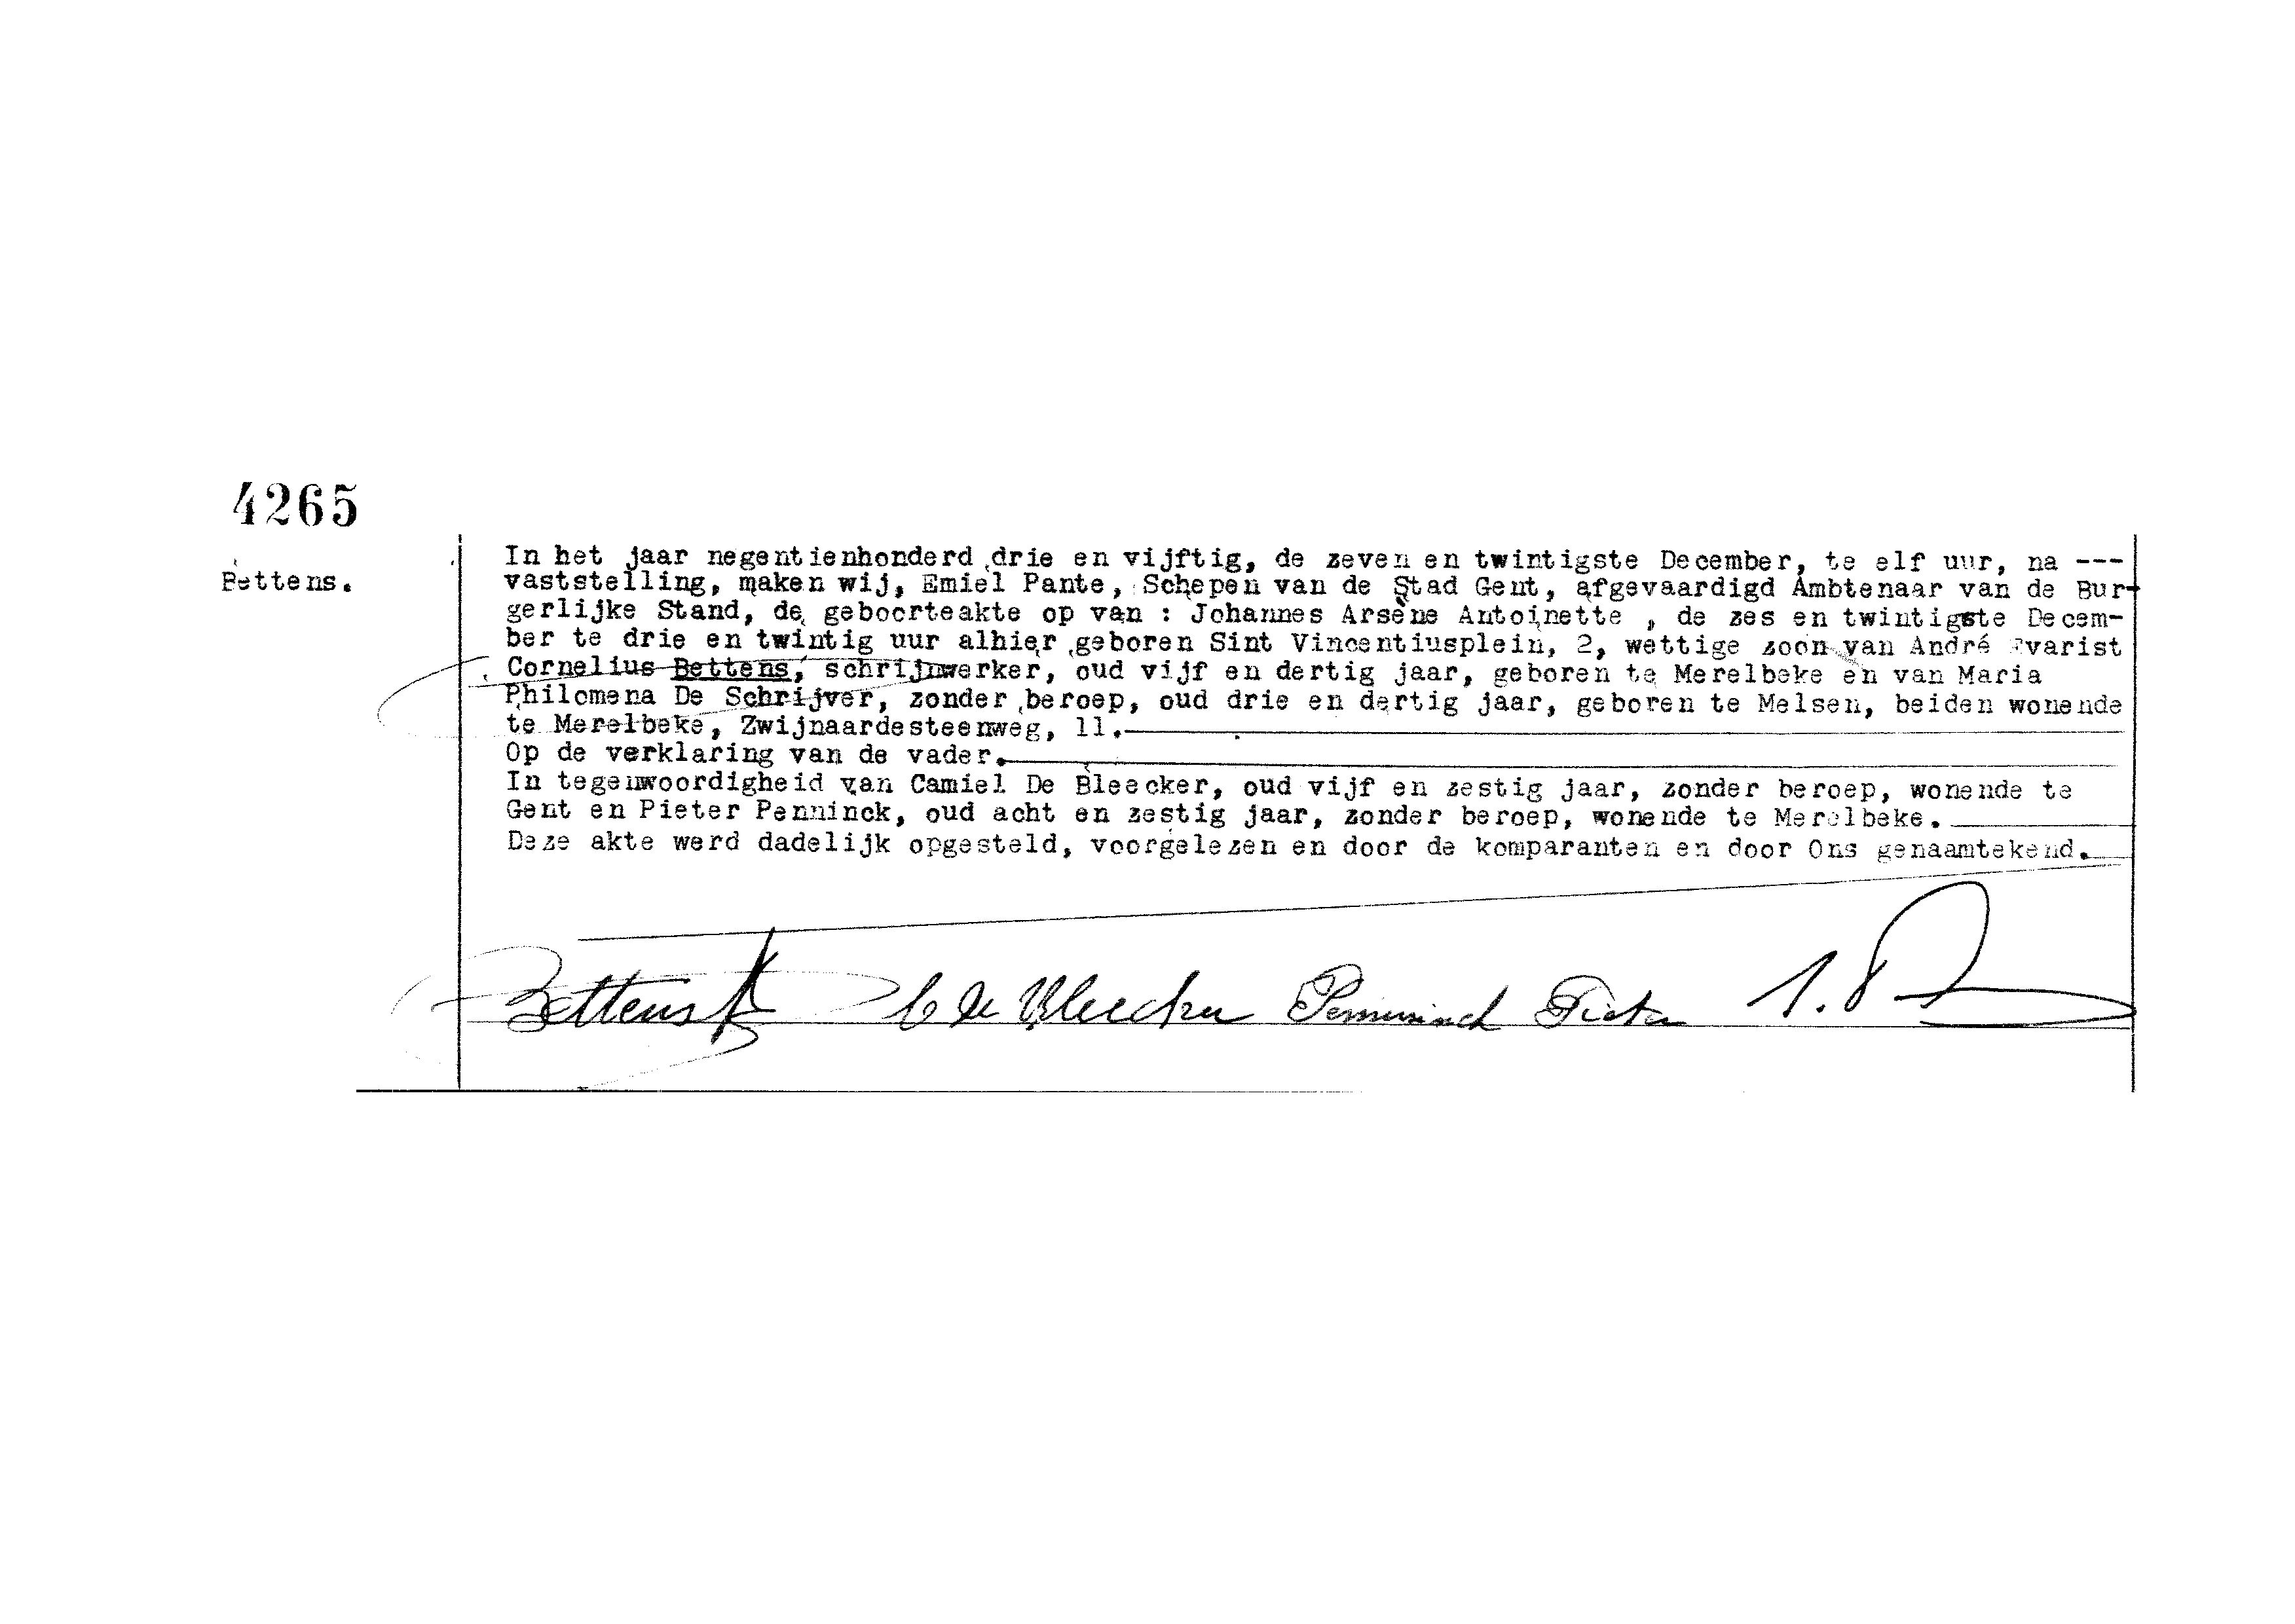 4265
Bettens.
In het jaar negentienhonderd drie en vijftig, de zeven en twintigste December, te elf uur, na ---
vaststelling, maken wij, Emiel Pante, Schepen van de Stad Gent, afgevaardigd Ambtenaar van de Bur-
gerlijke Stand, de geboorteakte op van : Johannes Arsène Antoinette , de zes en twintigste Decem-
ber te drie en twintig uur alhier geboren Sint Vincentiusplein, 2, wettige zoon van André Evarist
Cornelius Bettens, schrijnwerker, oud vijf en dertig jaar, geboren te Merelbeke en van Maria
Philomena De Schrijver, zonder beroep, oud drie en dertig jaar, geboren te Melsen, beiden wonende
te Merelbeke, Zwijnaardesteenweg, 11.
Op de verklaring van de vader.
In tegenwoordigheid van Camiel De Bleecker, oud vijf en zestig jaar, zonder beroep, wonende te
Gent en Pieter Penninck, oud acht en zestig jaar, zonder beroep, wonende te Merelbeke.
Deze akte werd dadelijk opgesteld, voorgelezen en door de komparanten en door Ons genaamtekend.
Bettens C De Bleecker Penninck Pieter